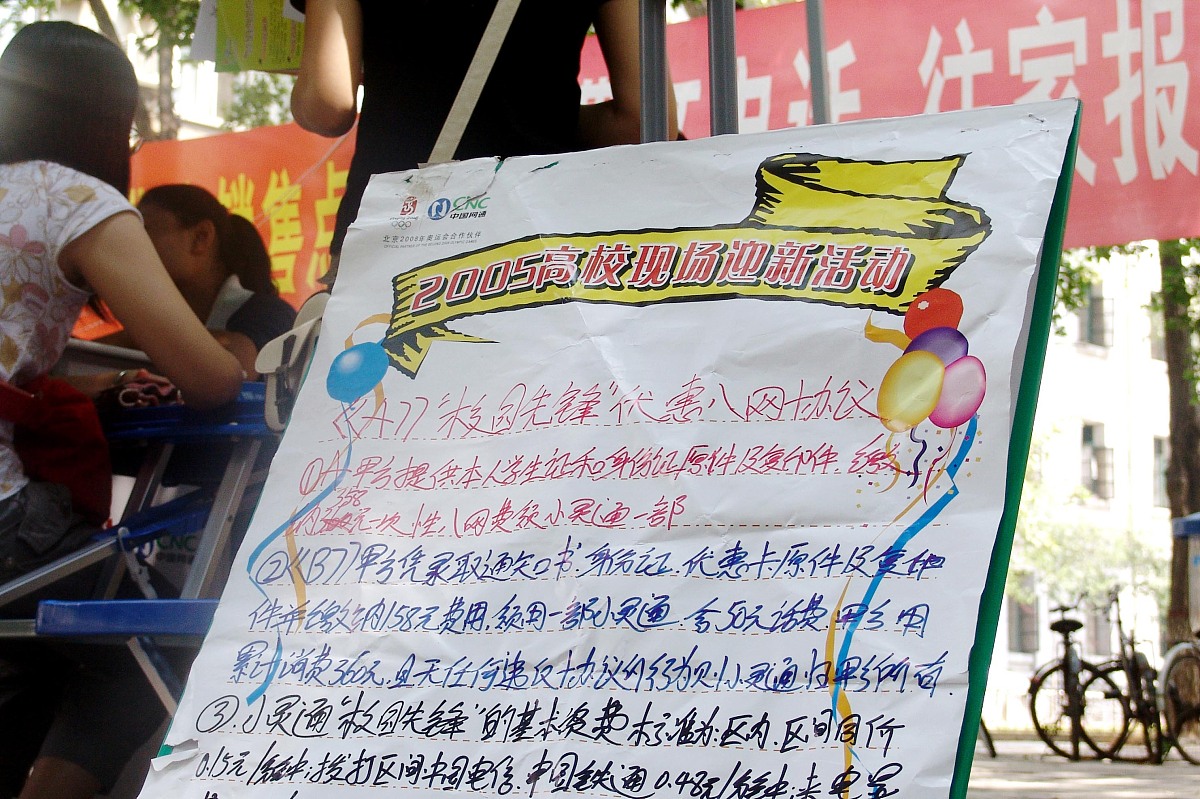 电话 往家报
销售点
CNC
中国网通
北京2008年奥运会合作伙伴
OFFICIAL PARTNER OF THE BEIJING 2008 OLYMPIC GAMES
2005高校现场迎新活动
《A》"校园先锋"优惠入网协议
①A 甲方提供本人学生证和身份证原件及复印件.缴
纳158元一次性入网费领小灵通一部
②《B》甲方凭录取通知书.身份证.优惠卡原件及复印
件并缴纳158元费用.领用一部小灵通.含50元话费.甲方用
累计消费360元,且无任何违反协议的行为则小灵通归甲方所有.
③.小灵通"校园先锋"的基本资费标准为:区内.区间同价
0.15元/分钟;拨打区间中国电信.中国铁通0.48元/分钟;来电显